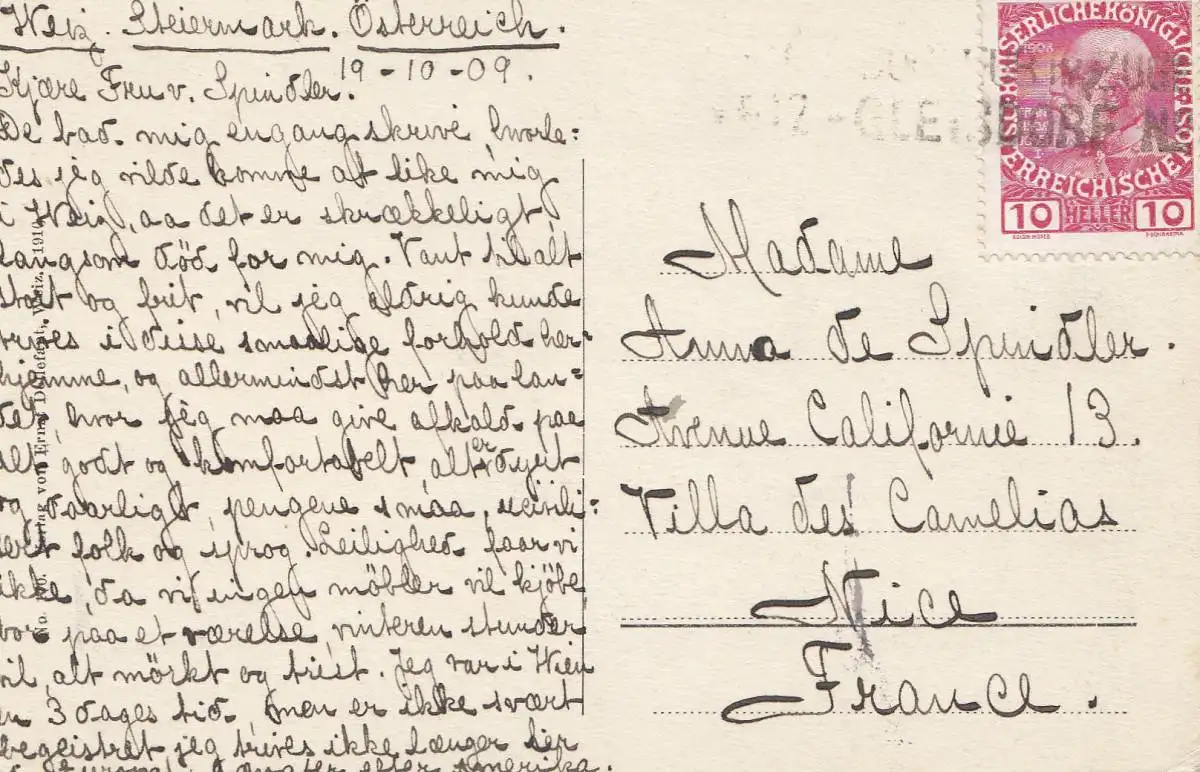 Weiz. Steiermark. Österreich.
19-10-09.
Kjære Fru v. Spindler.
De bad mig engang skrive, hvorle=
des jeg vilde komme at like mig
i Weiz, aa det er skrækkeligt,
langsom död for mig. Vant til alt
stort og frit, vil jeg aldrig kunde
trives i disse smaalige forhold her-
hjemme, og allermindst her paa lan=
det, hvor jeg maa give afkald paa
alt godt og komfortabelt, alt er dyrt
og daarligt, pengene smaa, ucivili=
sert folk og sprog. Leilighed faar vi
ikke, da vi ingen möbler vil kjöbe,
bor paa et værelse, vinteren stunder
til, alt mörkt og trist. Jeg var i Wien
en 3 dages tid, men er ikke svært
begeistret, jeg trives ikke længer her
i Europa, længter efter Amerika.
Verlag von Ernst Weiz. 1910
WEIZ-GLEISDORF N
KAISERLICHE KÖNIGLICHE
ÖSTERREICHISCHE
1908
10 HELLER 10
Madame
Anna de Spindler.
Avenue Californie 13.
Villa des Camelias
Nice
France.